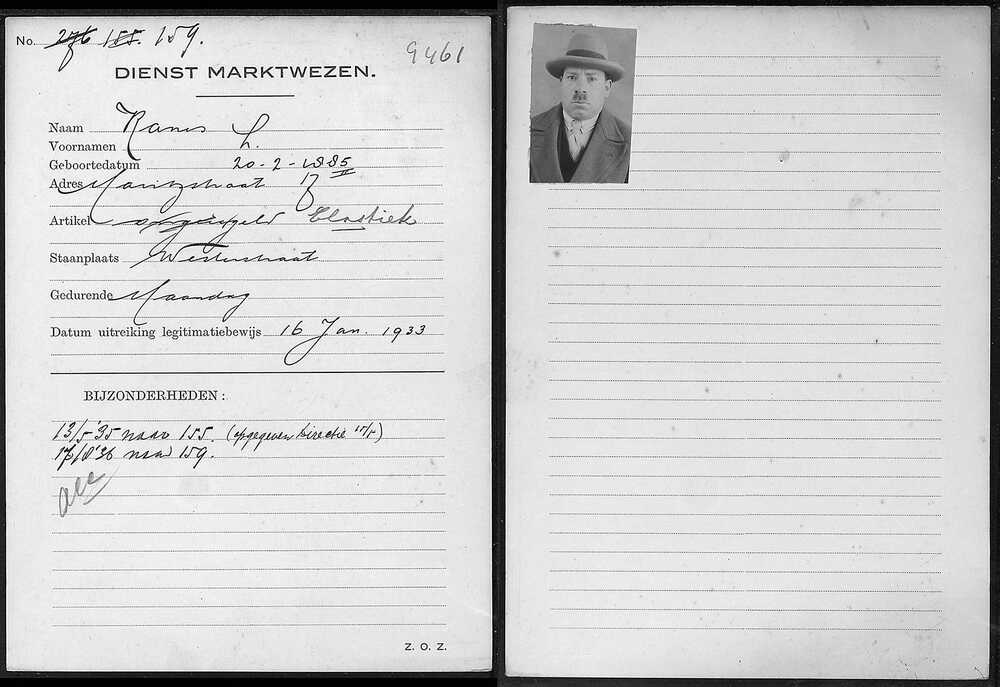 No. 276 155. 159.
9461
DIENST MARKTWEZEN.
Naam Kanes
Voornamen L.
Geboortedatum 20-2-1885
Adres Maritzstraat 17
Artikel Elastiek
Staanplaats Westerstraat
Gedurende Maandag
Datum uitreiking legitimatiebewijs 16 Jan. 1933
BIJZONDERHEDEN:
13/5 '35 naar 155. (opgegeven Directie 15/5)
17/8 '36 naar 159.
Z. O. Z.